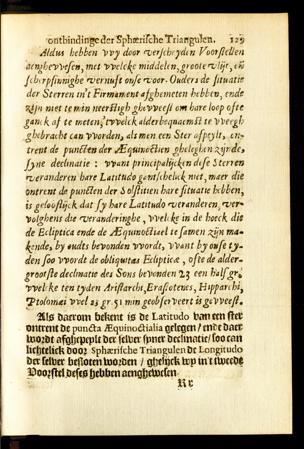 ontbindinge der Sphærische Triangulen. 129
Aldus hebben wy door verscheyden Voorstellen
aenghewesen, met welcke middelen, groote vlijt, en
scherpsinnighe vernuft onse voor-Ouders de situatie
der Sterren in't Firmament afghemeten hebben, ende
zijn niet te min neerstigh gheweest om hare loop ofte
ganck af te meten, 't welck alderbequaemst te weegh
ghebracht can worden, als men een Ster afpeylt, on-
trent de puncten der Æquinoctien gheleghen zijnde,
syne declinatie : want principalijcken dese Sterren
veranderen hare Latitudo gantschelick niet, maer die
ontrent de puncten der Solstitien hare situatie hebben,
is gelooflijck dat sy hare Latitudo veranderen, ver-
volghens die veranderinghe, welcke in de hoeck die
de Ecliptica ende de Æquinoctiael te samen zijn ma-
kende, by oudts bevonden worde, want by onse ty-
den soo worde de obliquitas Eclipticæ, ofte de alder-
grootste declinatie des Sons bevonden 23 een half gr.
welcke ten tyden Aristarchi, Erastotenes, Hipparchi,
Ptolomai wel 23 gr. 51 min geobserveert is geweest.
Als daerom bekent is de Latitudo van een ster
ontrent de puncta Æquinoctialia gelegen/ ende daer
wordt afghepeylt der selver syner declinatie/ soo can
lichtelick door Sphærische Triangulen de Longitudo
der selver besloten worden/ ghelijck wy in't tweede
Voorstel deses hebben aenghewesen.
Rr